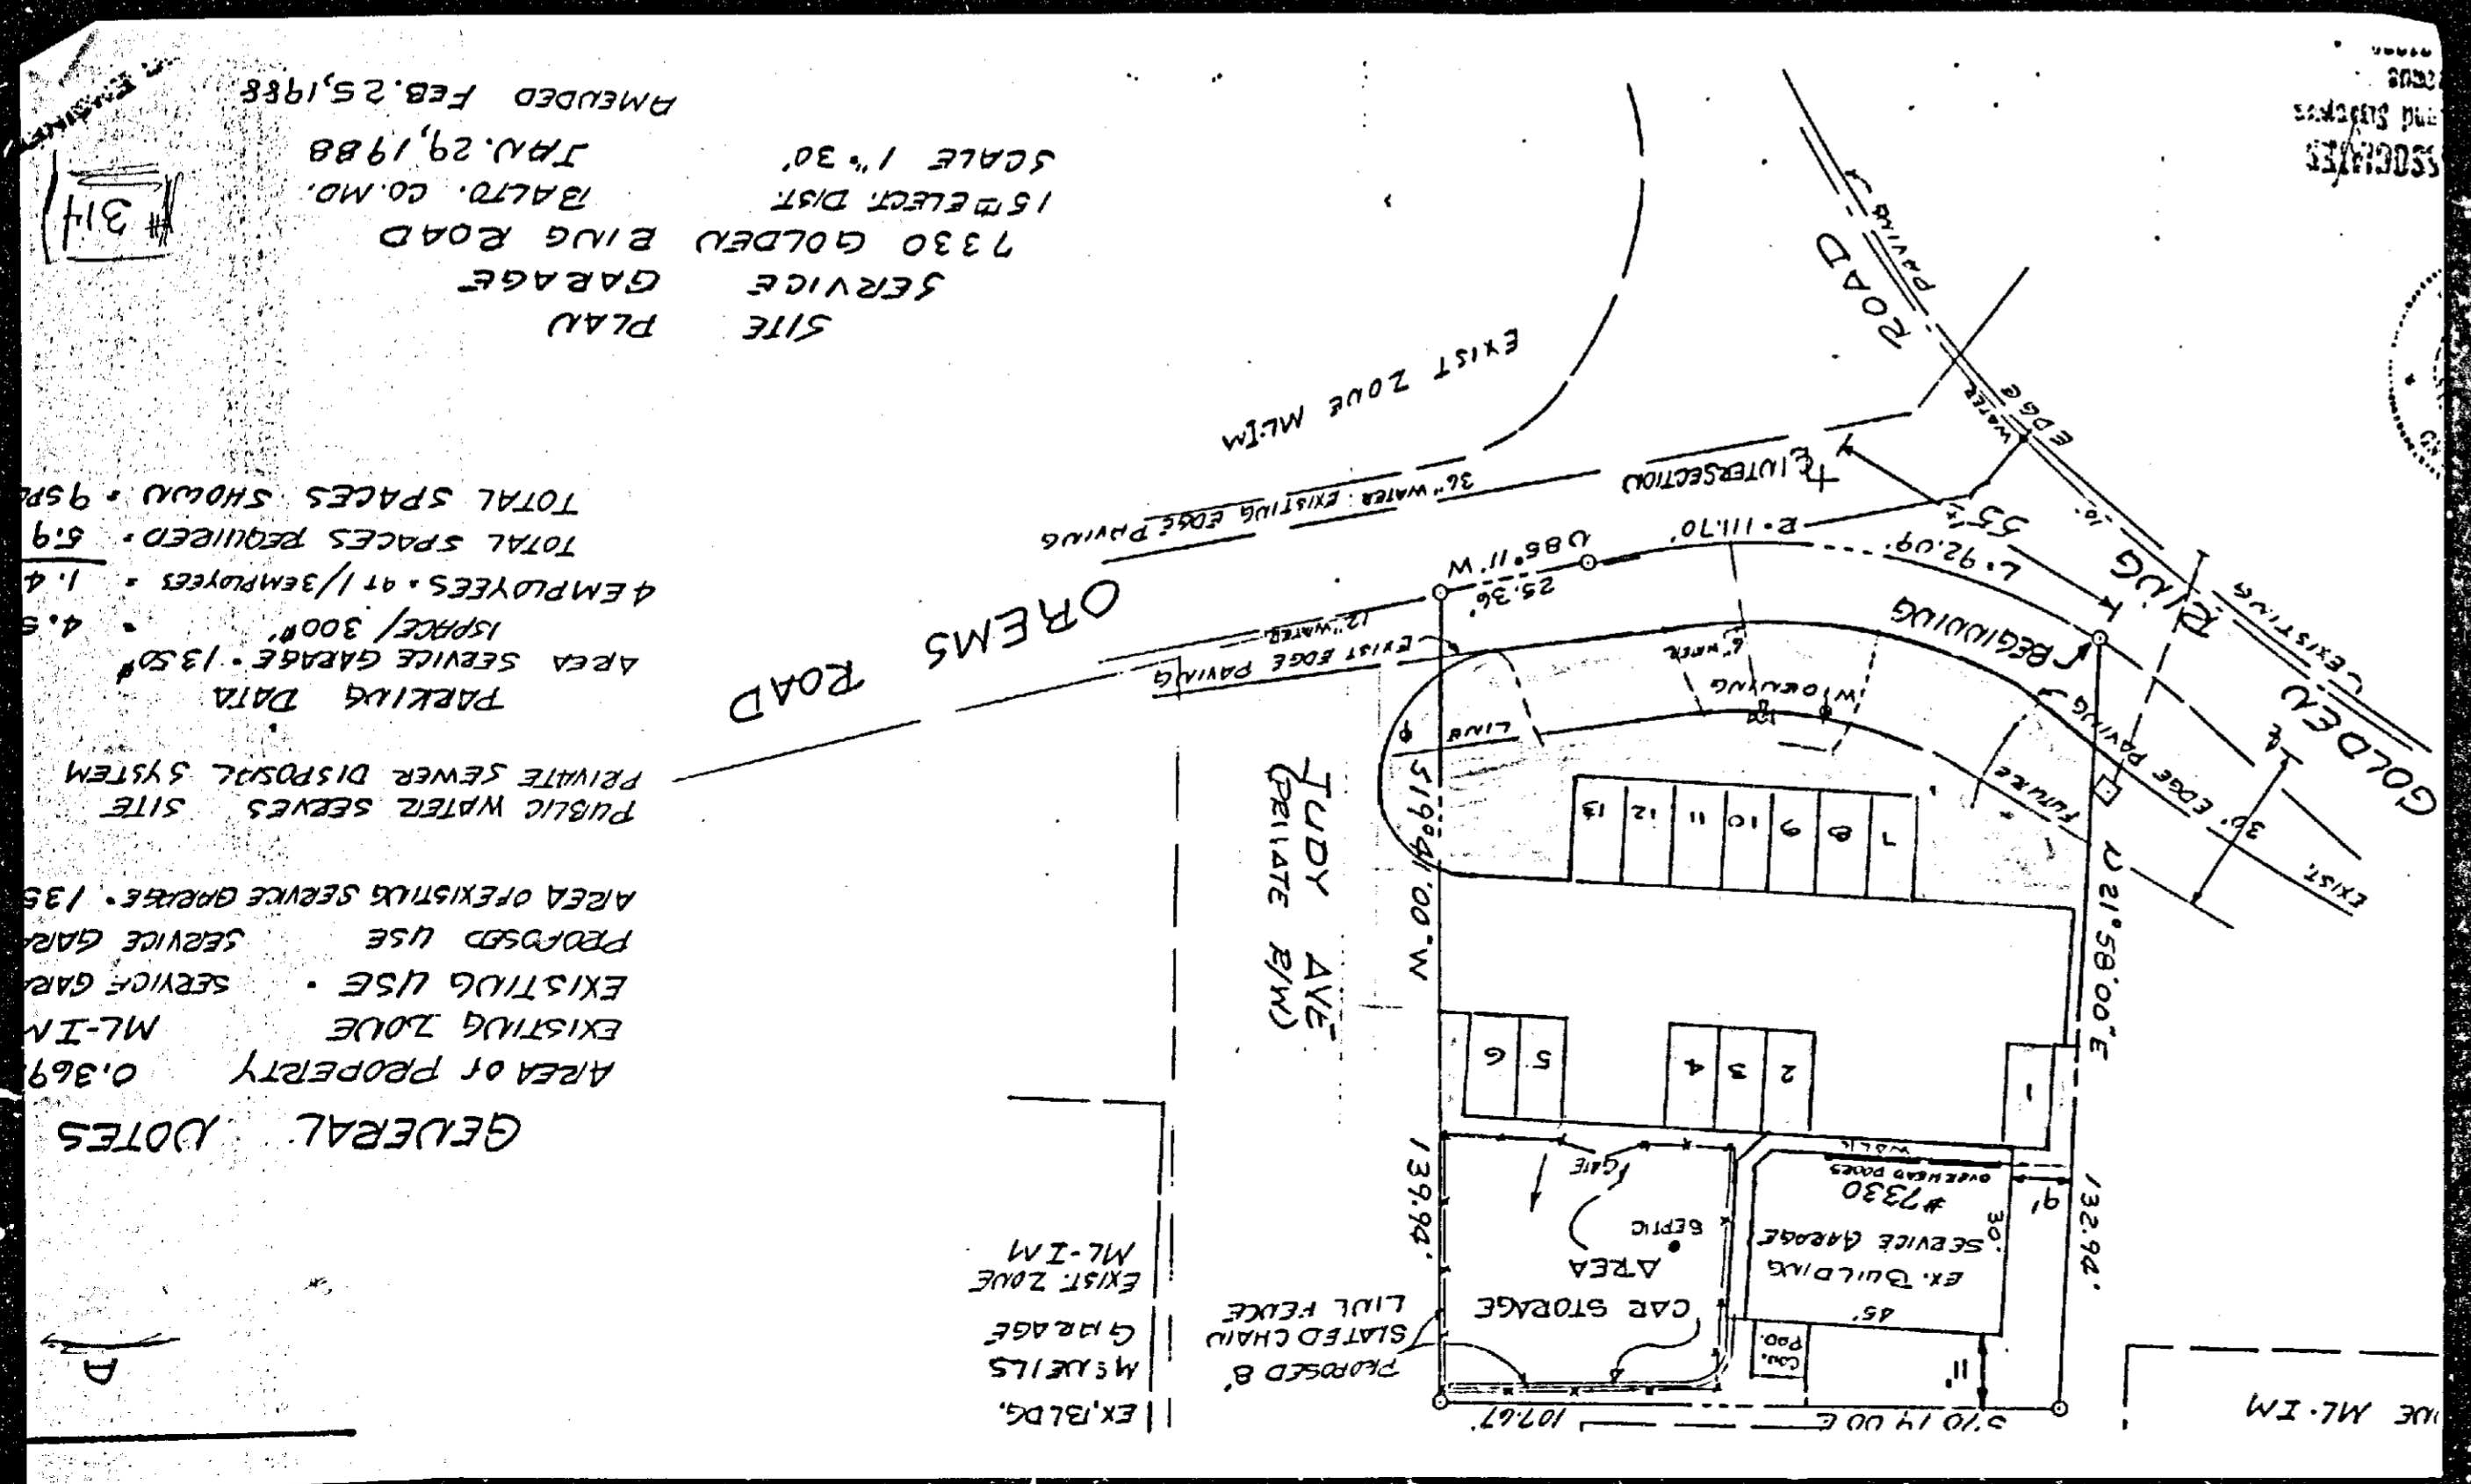 GENERAL NOTES
AREA OF PROPERTY 0.369
EXISTING ZONE ML-IM
EXISTING USE · SERVICE GARA
PROPOSED USE SERVICE GARA
AREA OF EXISTING SERVICE GARAGE · 135
PUBLIC WATER SERVES SITE
PRIVATE SEWER DISPOSAL SYSTEM
PARKING DATA
AREA SERVICE GARAGE · 1350#
1SPACE/300#' = 4.5
4 EMPLOYEES · AT 1/3 EMPLOYEES = 1.4
TOTAL SPACES REQUIRED = 5.9
TOTAL SPACES SHOWN = 9 SPA
SITE PLAN
SERVICE GARAGE
7330 GOLDEN RING ROAD
15TH ELECT. DIST. BALTO. CO. MD.
SCALE 1"=30' JAN. 29, 1988
AMENDED FEB. 25, 1988
# 314
A
EX. BLDG.
McNEILS
GARAGE
EXIST. ZONE
ML-IM
NE ML-IM
S70 14 00 E
107.67'
PROPOSED 8'
SLATED CHAIN
LINK FENCE
CAR STORAGE
AREA
SEPTIC
GATE
CON.
PAD.
11'
45'
EX. BUILDING
SERVICE GARAGE
#7330
30'
9'
OVERHEAD DOORS
WALK
132.94'
139.94'
1
2
3
4
5
6
7
8
9
10
11
12
13
N 21° 58' 00" E
S 19° 41' 00" W
JUDY AVE
(PRIVATE R/W)
FUTURE
WIDENING
LINE
6" WATER
EXIST. EDGE PAVING
30'
BEGINNING
EXIST EDGE PAVING
12" WATER
25.36'
N 86° 11' W
R=111.70'
L=92.09'
55'
OREMS ROAD
36" WATER
EXISTING EDGE PAVING
INTERSECTION
EXIST ZONE ML-IM
GOLDEN RING ROAD
EXISTING
10"
WATER
EDGE
PAVING
SSOCIATES
and Surveyors